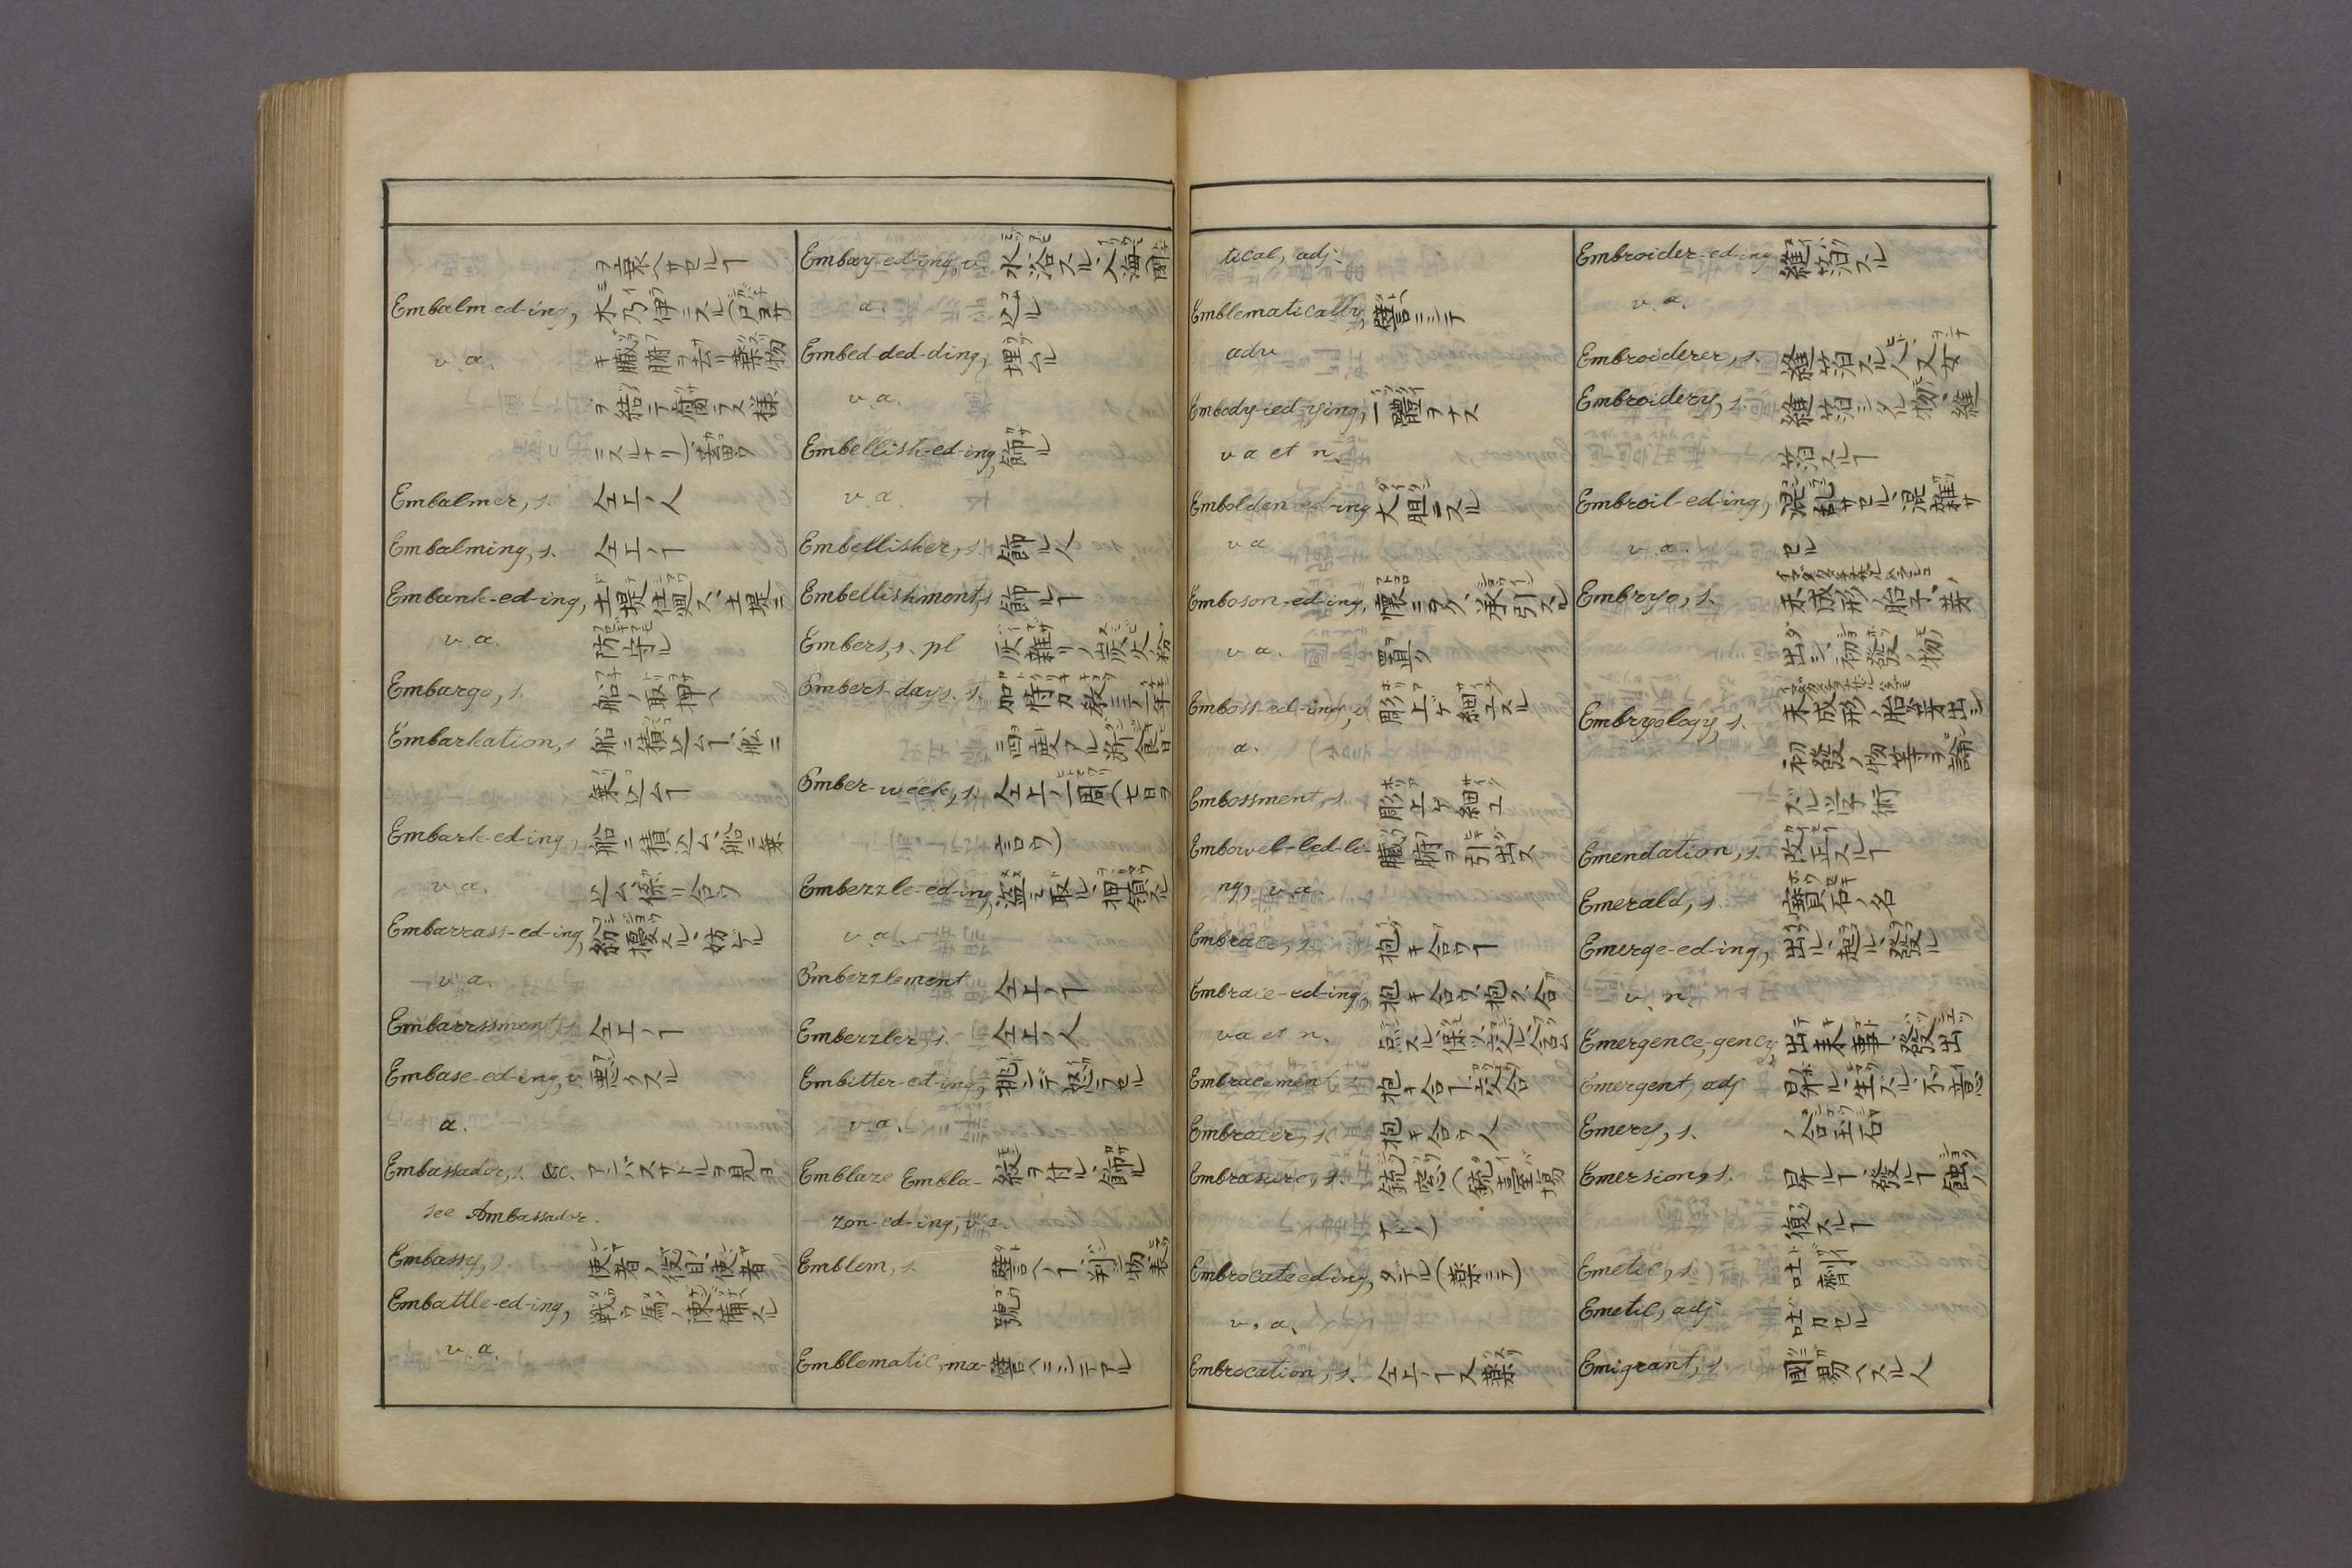 ヲ衰ヘサセルヿ
Embalm-ed-ing, 木乃伊ニスル(口ヨサ
v. a. キ臓腑ヲ去リ藥物
ヲ結テ腐ラヌ様
ニスルナリ)蓄フ
Embalmer, s. 仝上ノ人
Embalming, s. 仝上ノヿ
Embank-ed-ing, 土堤仕廻ス、土堤ニ
v. a. 防守ル
Embargo, s. 船ノ取押ヘ
Embarkation, s 船ニ積込ムヿ、船ニ
乗込ムヿ
Embark-ed-ing, 船ニ積込ム、船ニ乗
v. a. 込ム、係リ合フ
Embarrass-ed-ing, 紛擾スル、妨ゲル
v. a.
Embarrssment, s 仝上ノヿ
Embase-ed-ing, v 悪クスル
a.
Embassador, s. &c. アンバスサドルヲ見ヨ
see Ambassador.
Embassy, s. 使者ノ役目、使者
Embattle-ed-ing, 戦フ爲ノ陳備スル
v. a.
Embay-ed-ing, v. 水浴スル、入海ノ間ニ
a. 込ル
Embed-ded-ding, 埋ムル
v. a.
Embellish-ed-ing, 飾ル
v. a
Embellisher, s. 飾ル人
Embellishment, s 飾ルヿ
Embers, s. pl 灰雑リノ炭火ノ粉
Embers-days. s. 加特力教ニテ年
ニ四度アル斎食日
Ember-week, s. 仝上ノ一周(七日ヲ
言フ)
Embezzle-ed-ing, 盗ミ取ル、押領スル
v. a.
Embezzlement 仝上ノヿ
Embezzler, s. 仝上ノ人
Embitter-ed-ing, 挑ンデ怒ラセル
v. a.
Emblaze Embla- 紋ヲ付ル、飾ル
zon-ed-ing, v. a.
Emblem, s. 譬ヘノヿ、判ジ物、表
號
Emblematic, -ma- 譬ヘニシテアル
tical, adj.
Emblematically, 譬ヘニシテ
adv
Embody-ied-ying, 一體ヲナス
v a et n.
Embolden-ed-ing 大胆ニスル
v a
Emboson-ed-ing, 懐ニヲク、承引スル
v a. 置ク
Emboss-ed-ing, v 彫上ゲ細工スル
a.
Embossment, s. 彫上ゲ細工
Embowel-led-li- 臓腑ヲ引出ス
ng, v. a.
Embrace, s. 抱キ合フヿ
Embrace-ed-ing, 抱キ合フ、抱ク、合
v a et n.
Embracement 抱キ合ヿ
Embracer, s. 抱キ合フ人
Embrasure, s. 銃窓(銃臺場
ナドノ)
Embrocateed-ing, タデル(藥ニテ)
v. a.
Embrocation, s. 仝上ノヿ又藥
Embroider-ed-ing 縫箔スル
v. a.
Embroiderer, s. 縫箔スル人又女
Embroidery, s. 縫箔シタル物、縫
箔スルヿ
Embroil-ed-ing, 混乱サセル、混雑サ
v. a. セル
Embryo, s. 未成形ノ胎子、芽ノ
出シ、初發ノ物
Embryology, s. 未成形ノ胎芽出シ
初發ノ物等ヲ論
ズル学術
Emendation, s. 改正スルヿ
Emerald, s. 寶石ノ名
Emerge-ed-ing, 出ル、起ル、發ル
v. n.
Emergence, gency, 出来事、發出
Emergent, adj 昇ル、生ズル、不意
Emery, s. 金剛石
Emersion, s. 昇ルヿ、發ルヿ、蝕ノ
復スルヿ
Emetic, s. 吐劑
Emetic, adj 吐カセル
Emigrant, s. 國易ヘスル人